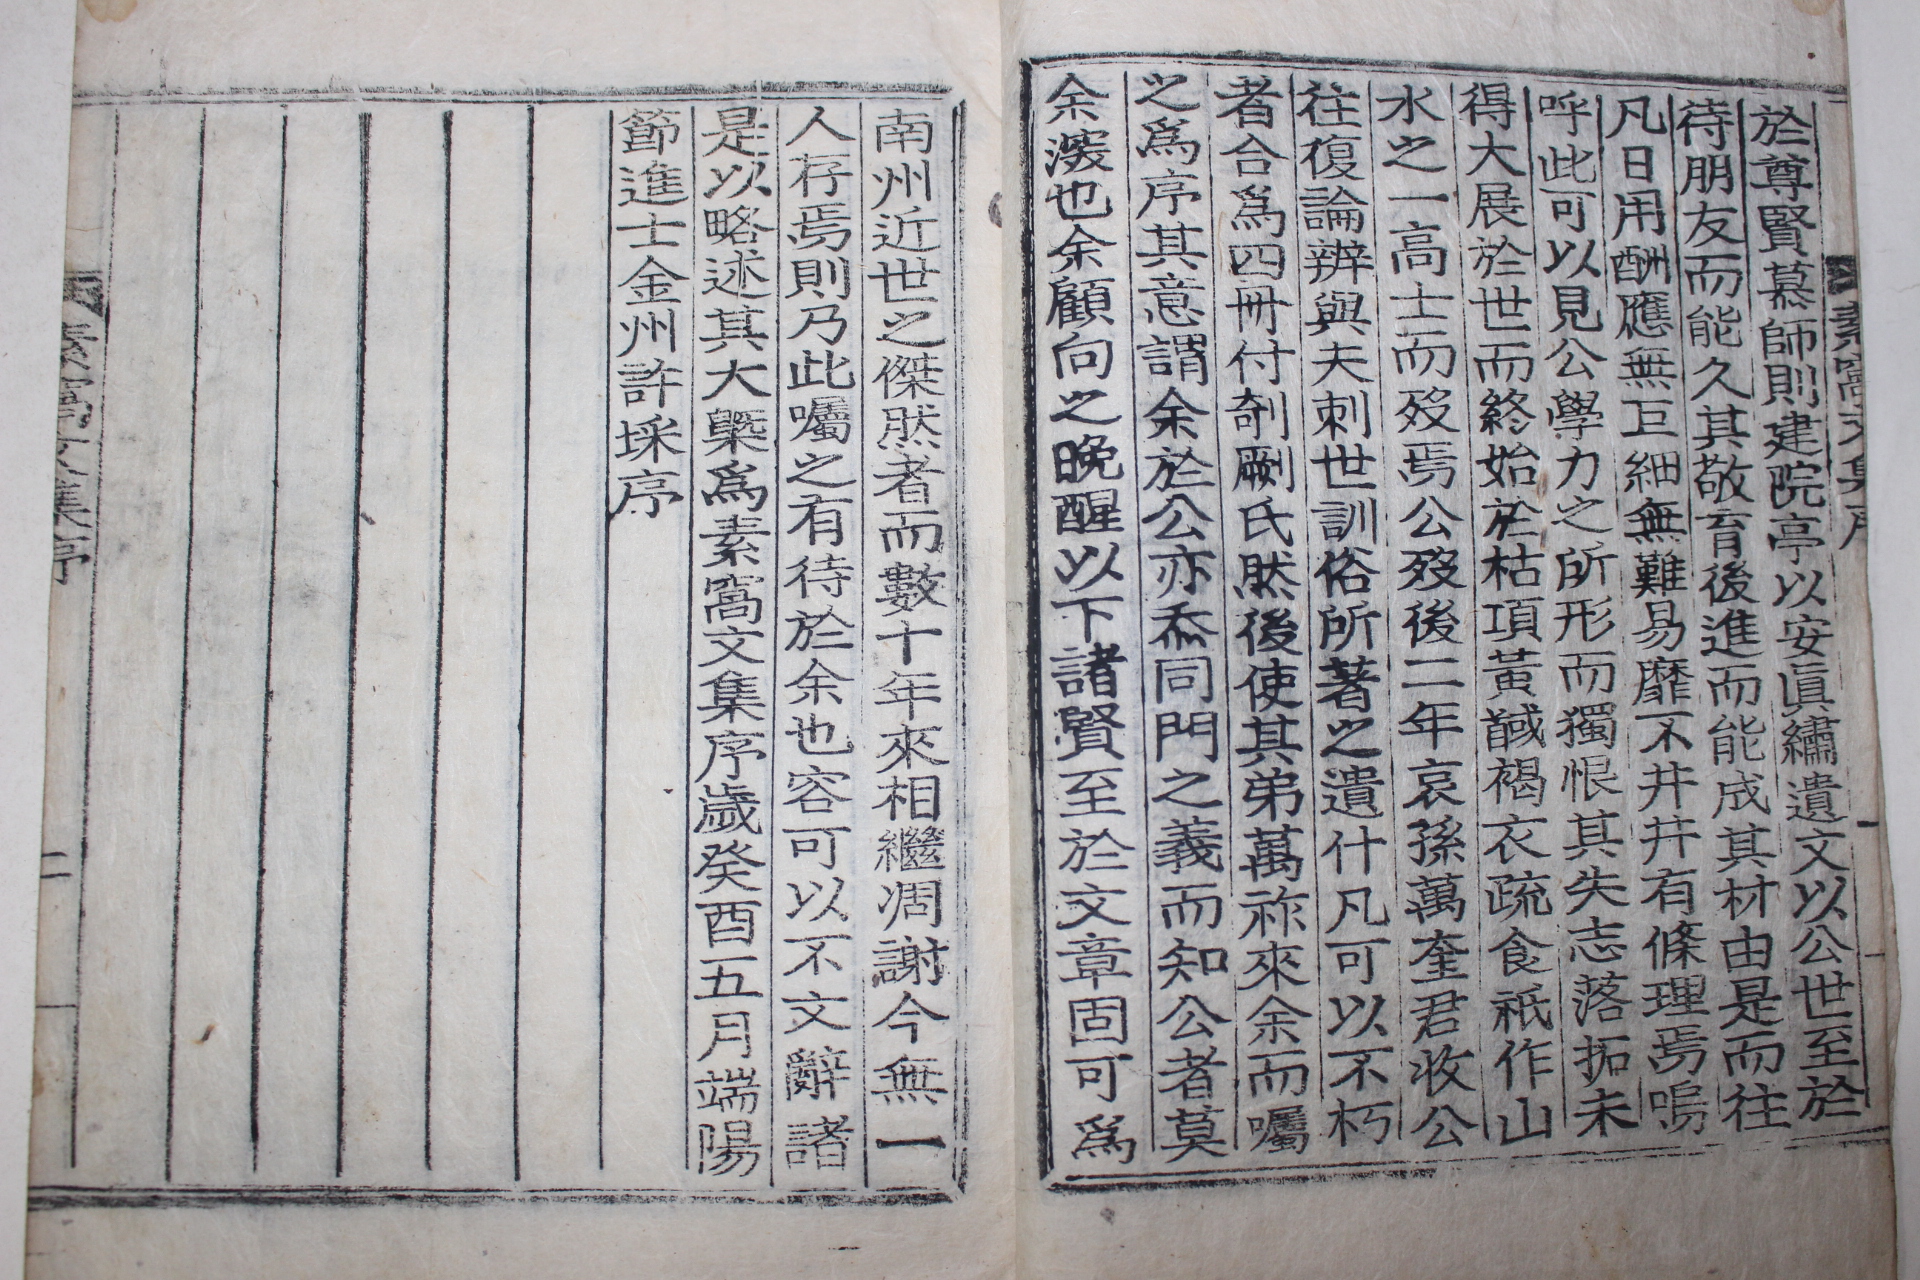 素窩文集序
於尊賢慕師則建院亭以安眞繡遺文以公世至於
待朋友而能久其敬育後進而能成其材由是而往
凡日用酬應無巨細無難易靡不井井有條理焉嗚
呼此可以見公學力之所形而獨恨其失志落拓未
得大展於世而終始於枯項黃馘褐衣疏食秖作山
水之一高士而歿焉公歿後二年哀孫萬奎君收公
往復論辨與夫刺世訓俗所著之遺什凡可以不朽
者合爲四冊付剞劂氏然後使其弟萬祚來余而囑
之爲序其意謂余於公亦忝同門之義而知公者莫
余深也余顧向之晩醒以下諸賢至於文章固可爲
南州近世之傑然者而數十年來相繼凋謝今無一
人存焉則乃此囑之有待於余也容可以不文辭諸
是以略述其大槩爲素窩文集序歲癸酉五月端陽
節進士金州許埰序
素窩文集序
二